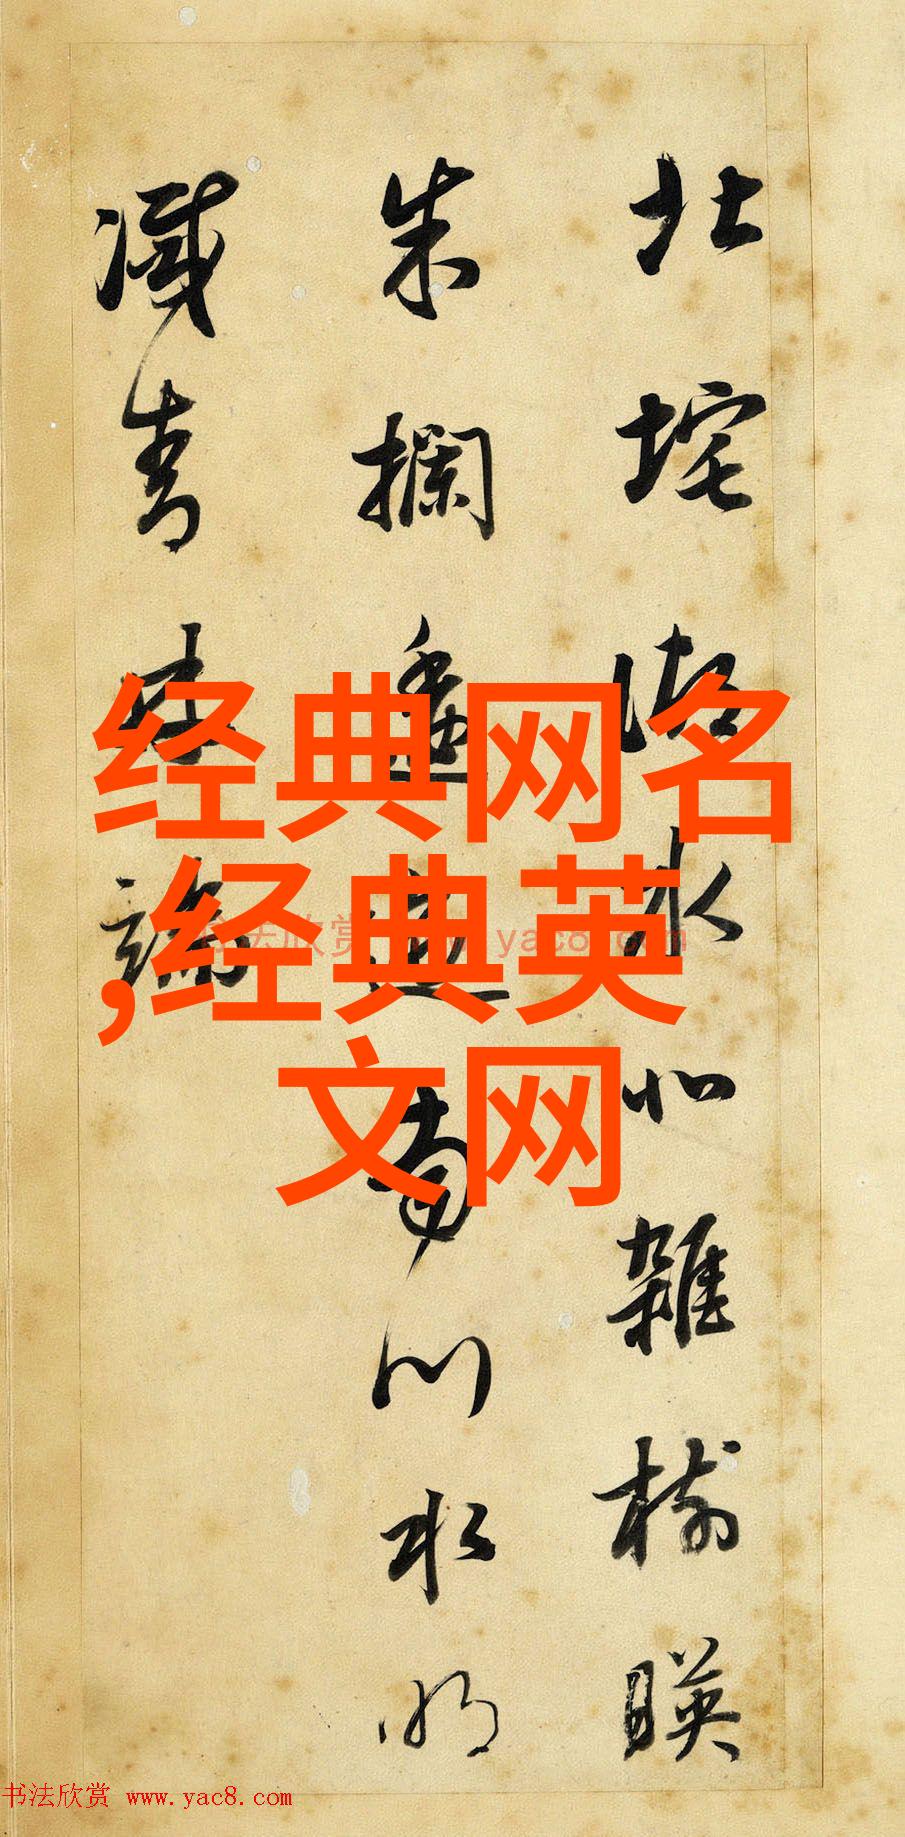 北垞湖水北雜樹暎
朱欄逶迤南川水明
滅青林端
经典网名
,经典英
文网
书法欣赏 www.yac8.com
书法欣赏 www.yac8.com